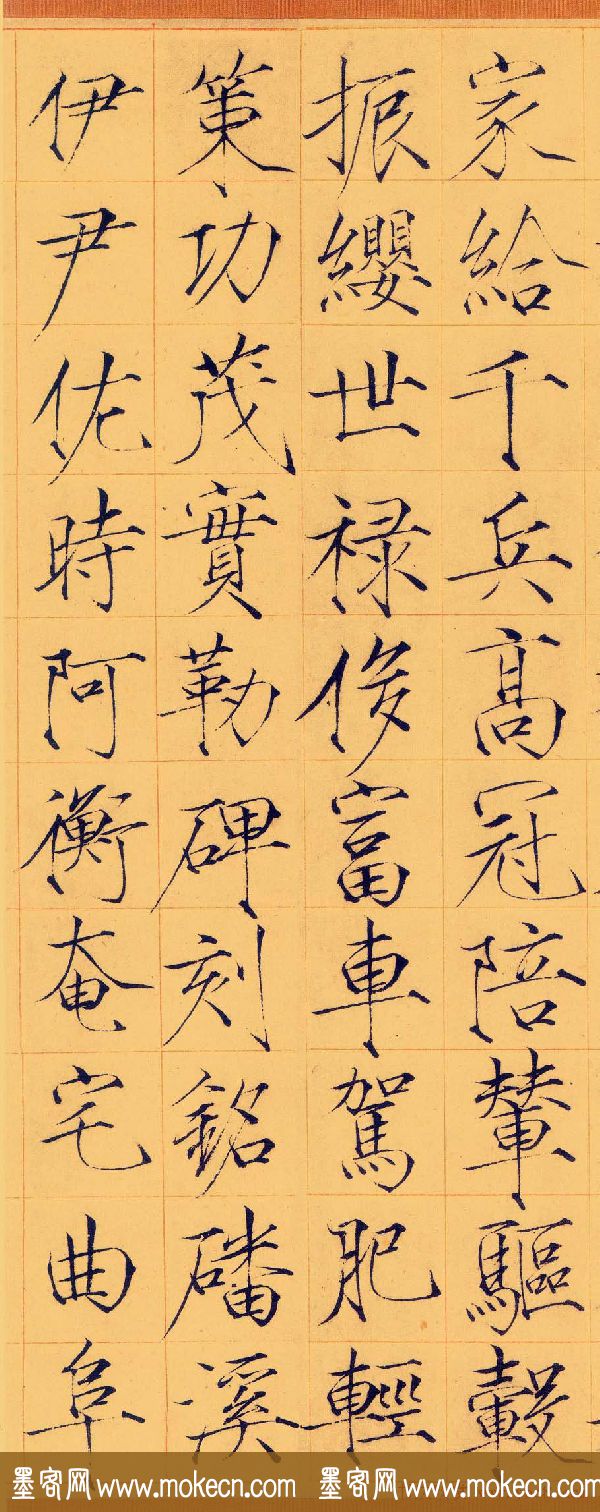 家給千兵高冠陪輦驅轂
振纓世禄侈富車駕肥輕
策功茂實勒碑刻銘磻溪
伊尹佐時阿衡奄宅曲阜
墨客网 www.mokecn.com 墨客网 www.mokecn.com